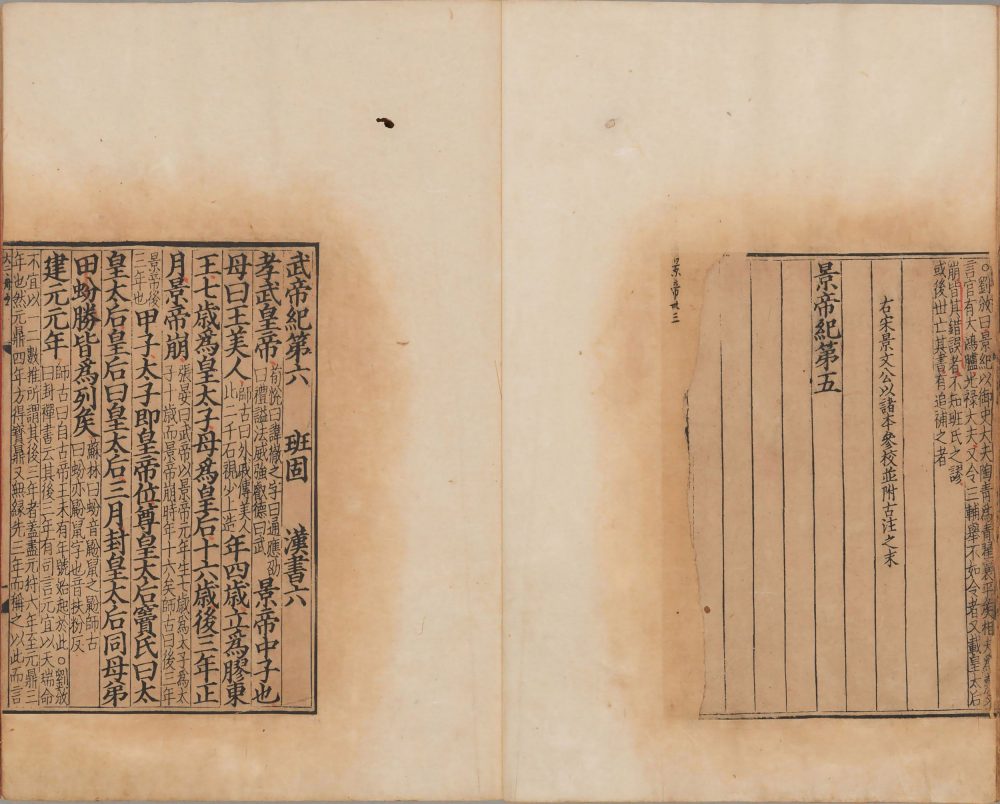 ○劉攽曰景紀以御史大夫陶青爲青翟襄平侯相
言官有大鴻臚光祿大夫又令三輔舉不如令者又載皇太后
崩皆其錯誤者不知班氏之謬
或後世亡其書有追補之者
右宋景文公以諸本參校並附古注之末
景帝紀第五
景帝
武帝紀第六 班固 漢書六
孝武皇帝 荀悅曰諱徹之字曰通應劭
曰禮謚法威強叡德曰武 景帝中子也
母曰王美人 師古曰外戚傳美人
比二千石視少上造 年四歲立爲膠東
王七歲爲皇太子母爲皇后十六歲後三年正
月景帝崩 張晏曰武帝以景帝元年生七歲爲太子爲太
子十歲而景帝崩時年十六矣師古曰後三年
景帝後
三年也 甲子太子即皇帝位尊皇太后竇氏曰太
皇太后皇后曰皇太后三月封皇太后同母弟
田蚡勝皆爲列侯 蘇林曰蚡音鼢鼠之鼢師古
曰蚡亦鼢鼠字也音扶粉反
建元元年 師古曰自古帝王未有年號始起於此○劉攽
曰封禪書云其後三年有司言元宜以天瑞命
不宜以一二數推所謂其後三年者蓋盡元狩六年至元鼎三
年也然元鼎四年方得寶鼎又無緣先三年而稱之以此而言